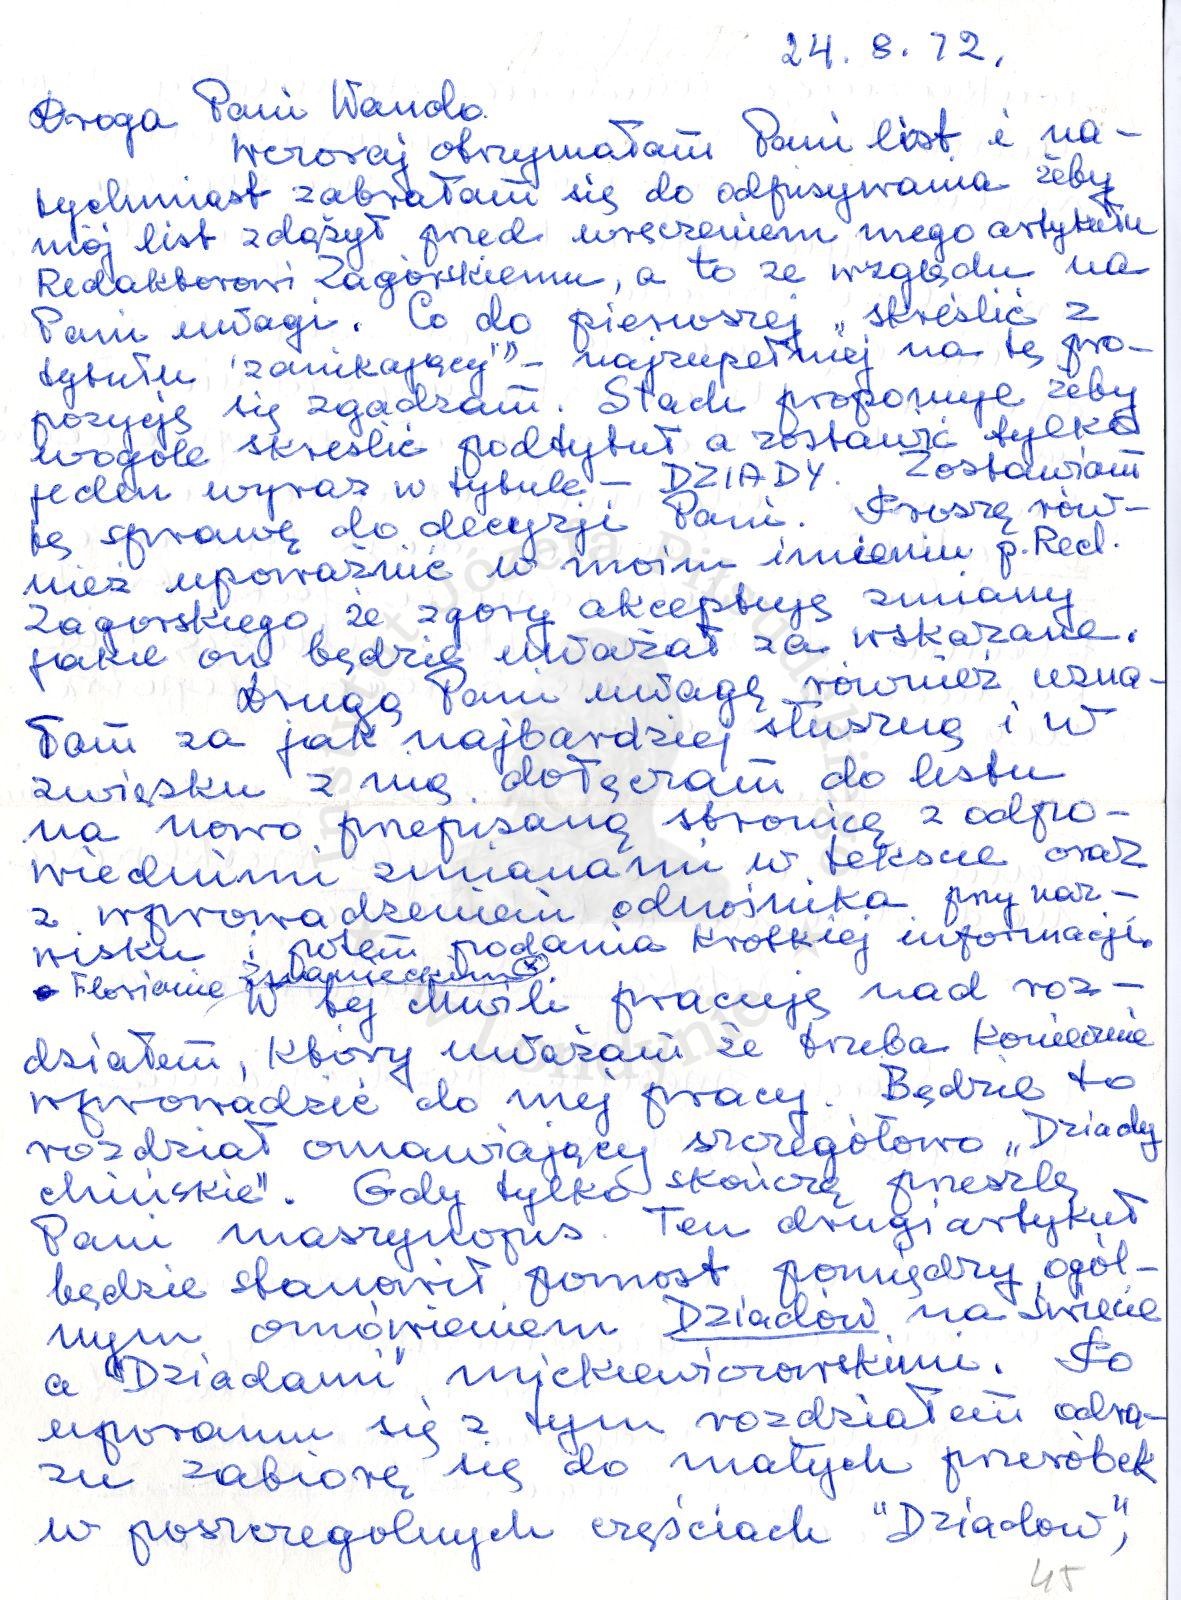 24. 8. 72.
Droga Pani Wando.
Wczoraj otrzymałam Pani list i na-
tychmiast zabrałam się do odpisywania żeby
mój list zdążył przed wręczeniem mego artykułu
Redaktorowi Zagórskiemu, a to ze względu na
Pani uwagi. Co do pierwszej „skreślić z
tytułu 'zanikający'” – najzupełniej na tę pro-
pozycję się zgadzam. Stach proponuje żeby
wogóle skreślić podtytuł a zostawić tylko
jeden wyraz w tytule – DZIADY. Zostawiam
tę sprawę do decyzji Pani. Proszę rów-
nież upoważnić w moim imieniu p. Red.
Zagórskiego, że zgóry akceptuję zmiany
jakie on będzie uważał za wskazane.
Drugą Pani uwagę również uzna-
łam za jak najbardziej słuszną i w
związku z nią dołączam do listu
na nowo przepisaną stronicę z odpo-
wiednimi zmianami w tekscie oraz
z wprowadzeniem odnośnika przy naz-
wisku i potem podania krótkiej informacji.
• Florianie Znanieckim ⊗
W tej chwili pracuję nad roz-
działem, który uważam że trzeba koniecznie
wprowadzić do mej pracy. Będzie to
rozdział omawiający szczegółowo „Dziady
chińskie”. Gdy tylko skończę prześlę
Pani maszynopis. Ten drugi artykuł
będzie stanowił pomost pomiędzy ogól-
nym omówieniem Dziadów na świecie
a "Dziadami" mickiewiczowskimi. Po
uporaniu się z tym rozdziałem odra-
zu zabiorę się do małych przeróbek
w poszczególnych częściach "Dziadów",
45
Instytut Józefa Piłsudskiego
w Londynie